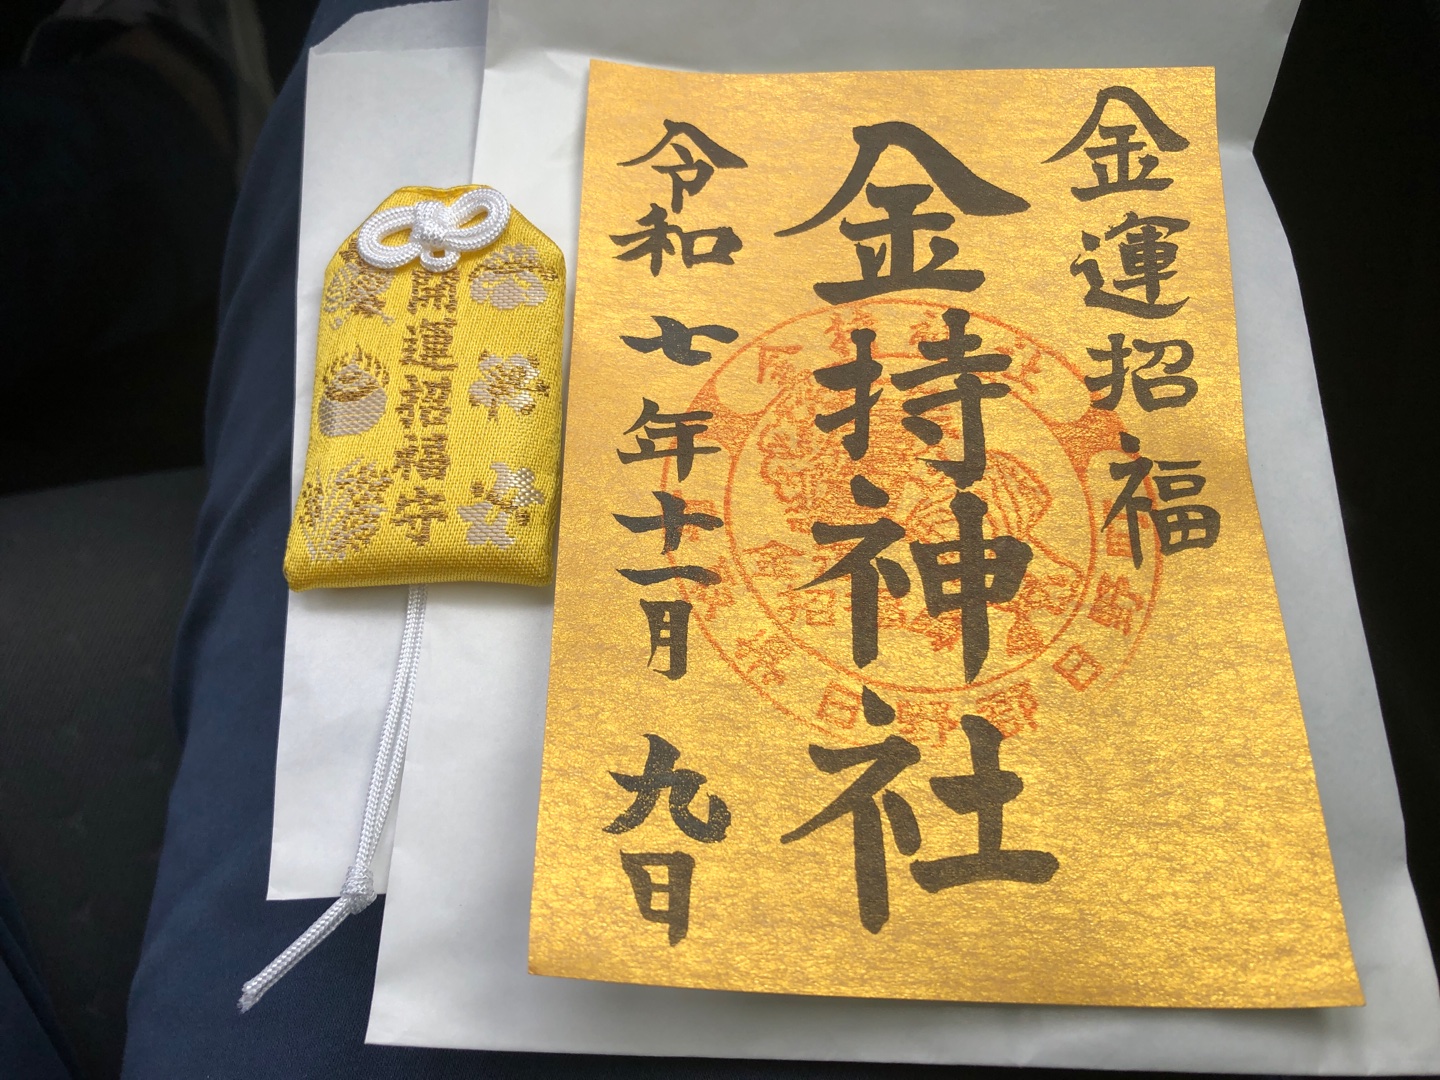 金運招福
金持神社
令和七年十一月九日
開運招福守